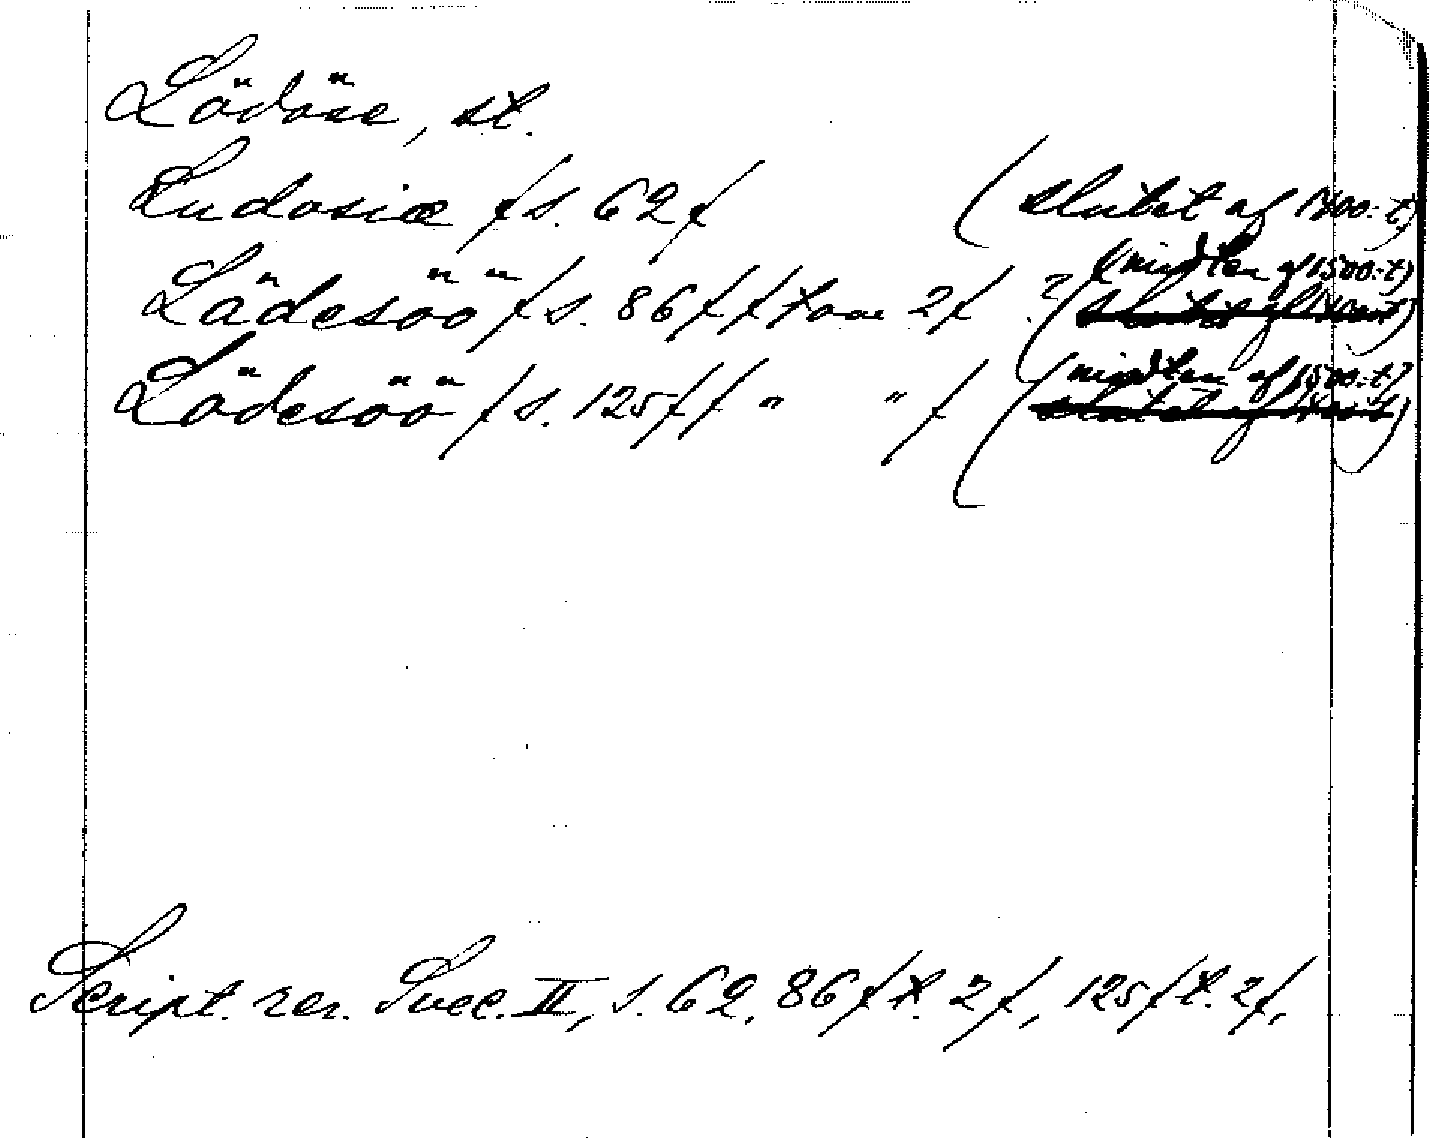 Lödöse, st.
Ludosiæ (s. 62) (slutet af 1400:t)
(midten af 1500:t)
Lädesöö (s. 86) (tom 2) ? (slutet af 1400:t)
(midten af 1500:t)
Lödesöö (s. 125) ( " " ) (slutet af
Script. rer. Svec. II, s. 62, 86 (t. 2), 125 (t. 2).